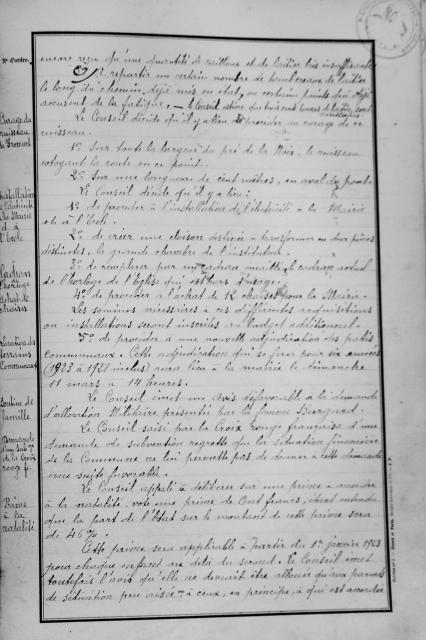 N° d'ordre
encore reçu qu'une quantité de cailloux et de laitier très insuffisante
répartir un certain nombre de tombereaux de laitier
le long du chemin, déjà mis en état, en certains points qui déjà
accusent de la fatigue. — Le Conseil estime que trois cent tonnes de laitier sont nécessaires
Curage du
ruisseau
Le Conseil décide qu'il y a lieu de procéder au curage de ce
ruisseau.
1° Sur toute la largeur du pré de la Noie, le ruisseau
cotoyant la route en ce point.
2° Sur une longueur de cent mètres, en aval du pont.
Installation
d'électricité
à la Mairie
et à
l'Ecole
Le Conseil décide qu'il y a lieu :
1° de procéder à l'installation de l'électricité à la Mairie
et à l'Ecole.
2° de créer une cloison destinée à transformer en deux pièces
distinctes, la grande chambre de l'instituteur.
Cadran
l'horloge
achat de
chaises
3° de remplacer par un cadran émaillé, le cadran actuel
de l'horloge de l'Eglise qui est hors d'usage.
4° de procéder à l'achat de 12 chaises pour la Mairie.
Les sommes nécessaires à ces différentes acquisitions
ou installations seront inscrites au budget additionnel.
Locations des
terrains
Communaux
5° de procéder à une nouvelle adjudication des patis
communaux. Cette adjudication qui se fera pour six années
(1923 à 1928 inclus) aura lieu à la mairie le dimanche
11 mars à 14 heures.
Soutien de
famille
Le Conseil émet un avis défavorable à la demande
d'allocation Militaire présentée par la femme
Demande
d'une subv.on
de la Croix
rouge f.
Le Conseil saisi par la Croix Rouge française d'une
demande de subvention regrette que la situation financière
de la Commune ne lui permette pas de donner à cette demande
une suite favorable.
Prime
à la
natalité
Le Conseil appelé à délibérer sur une prime à accorder
à la natalité, vote une prime de Cent francs, étant entendu
que la part de l'Etat sur le montant de cette prime sera
de 46%.
Cette prime sera applicable à partir du 1er janvier 1923
pour chaque enfant au delà du second. Le Conseil émet
toutefois l'avis qu'elle ne devrait être allouée qu'aux parents
de situation peu aisée à ceux, en principe, à qui est accordée